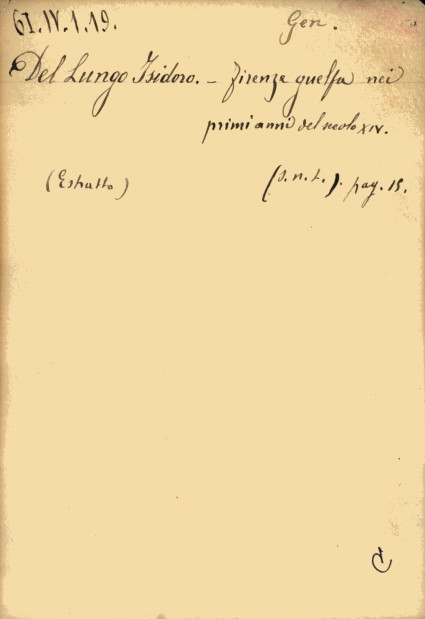 61.IV.1.19.
Gen.
Del Lungo Isidoro. – Firenze guelfa nei
primi anni del secolo XIV.
(Estratto) (s.n.t.). pag. 15.